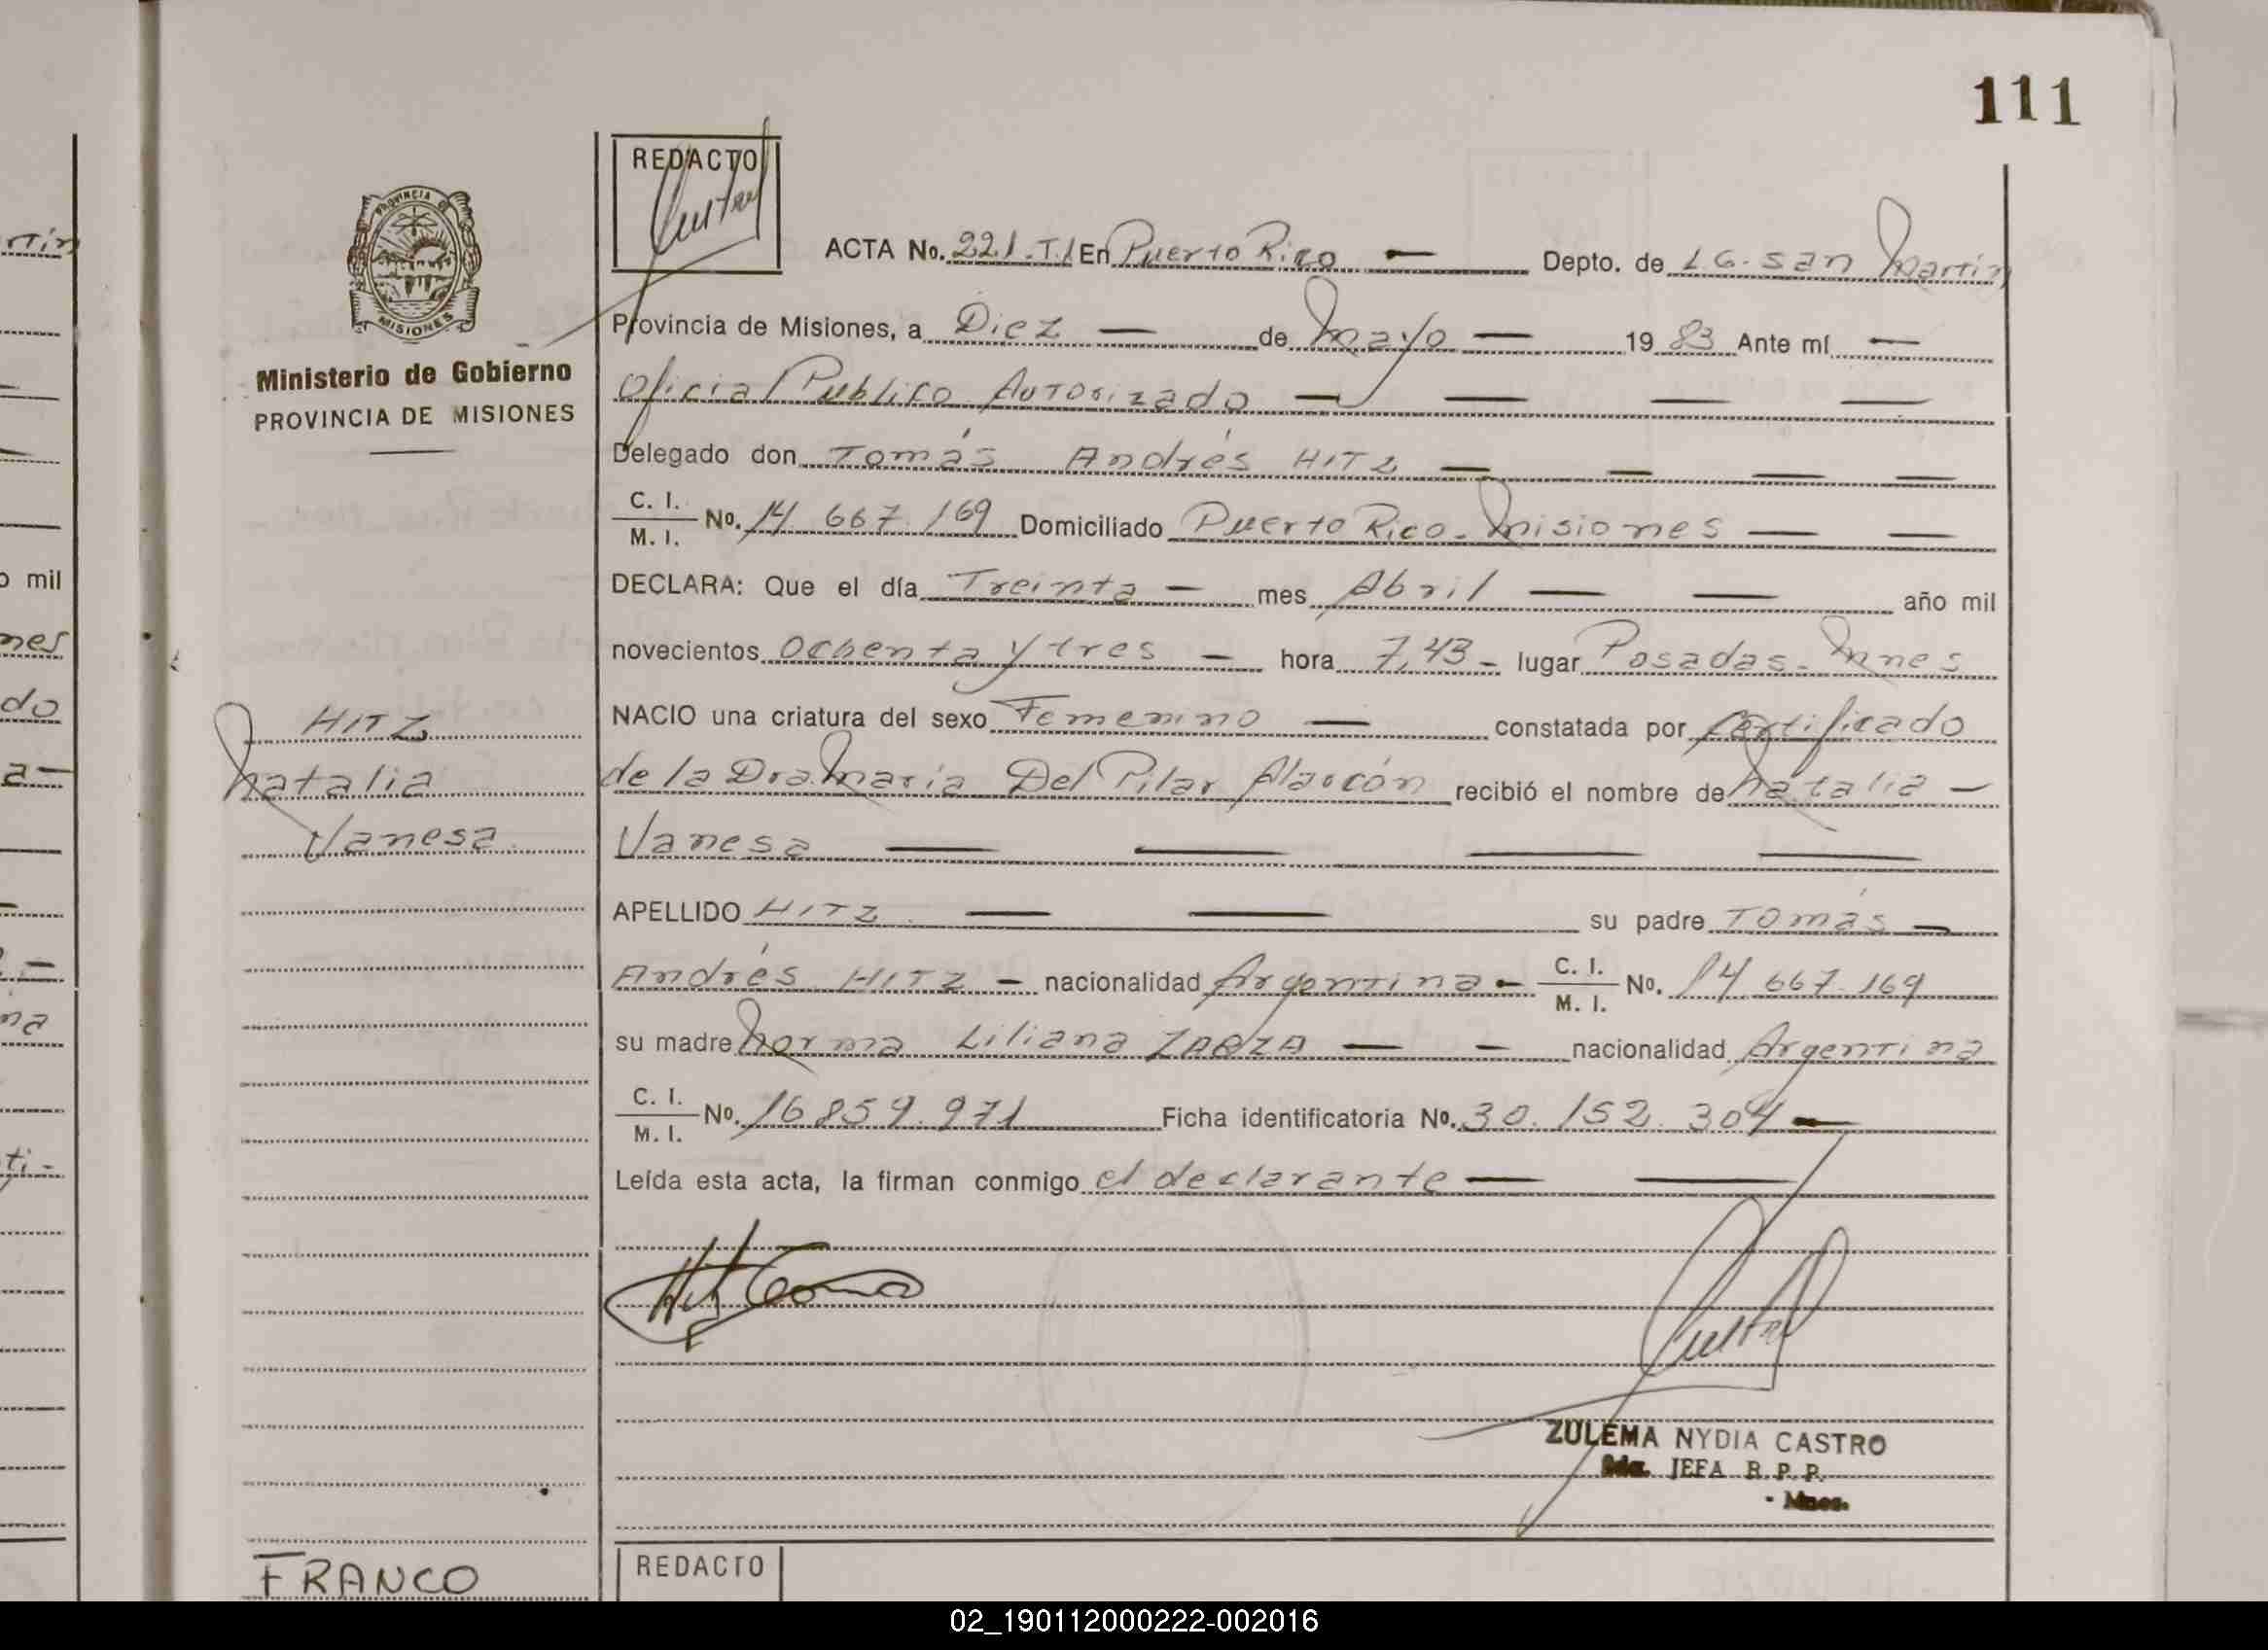 111
REDACTO
PROVINCIA D
MISIONES
Ministerio de Gobierno
PROVINCIA DE MISIONES
ACTA No. 221. T.I En Puerto Rico — Depto. de L.G. San Martín
Provincia de Misiones, a Diez — de Mayo — 1983 Ante mí —
Oficial Publico Autorizado — — — —
Delegado don Tomás Andrés HITZ — — — —
C. I.
M. I. No. 14 667. 169 Domiciliado Puerto Rico. Misiones — —
DECLARA: Que el día Treinta — mes Abril — — año mil
novecientos Ochenta y tres — hora 7,43 — lugar Posadas. Mnes
NACIO una criatura del sexo Femenino — constatada por Certificado
de la Dra María Del Pilar Alarcón recibió el nombre de Natalia —
Vanesa — — — —
APELLIDO HITZ — — su padre Tomás —
Andrés HITZ — nacionalidad Argentina — C. I.
M. I. No. 14 667. 169
su madre Norma Liliana ZARZA — — nacionalidad Argentina
C. I.
M. I. No. 16 859. 971 Ficha identificatoria No. 30. 152. 304 —
Leída esta acta, la firman conmigo el declarante — —
HITZ
Natalia
Vanesa
ZULEMA NYDIA CASTRO
JEFA R. P. P.
- Mnes.
FRANCO
REDACTO
rtin
o mil
nes
do
a —
na
ti -
02_190112000222-002016